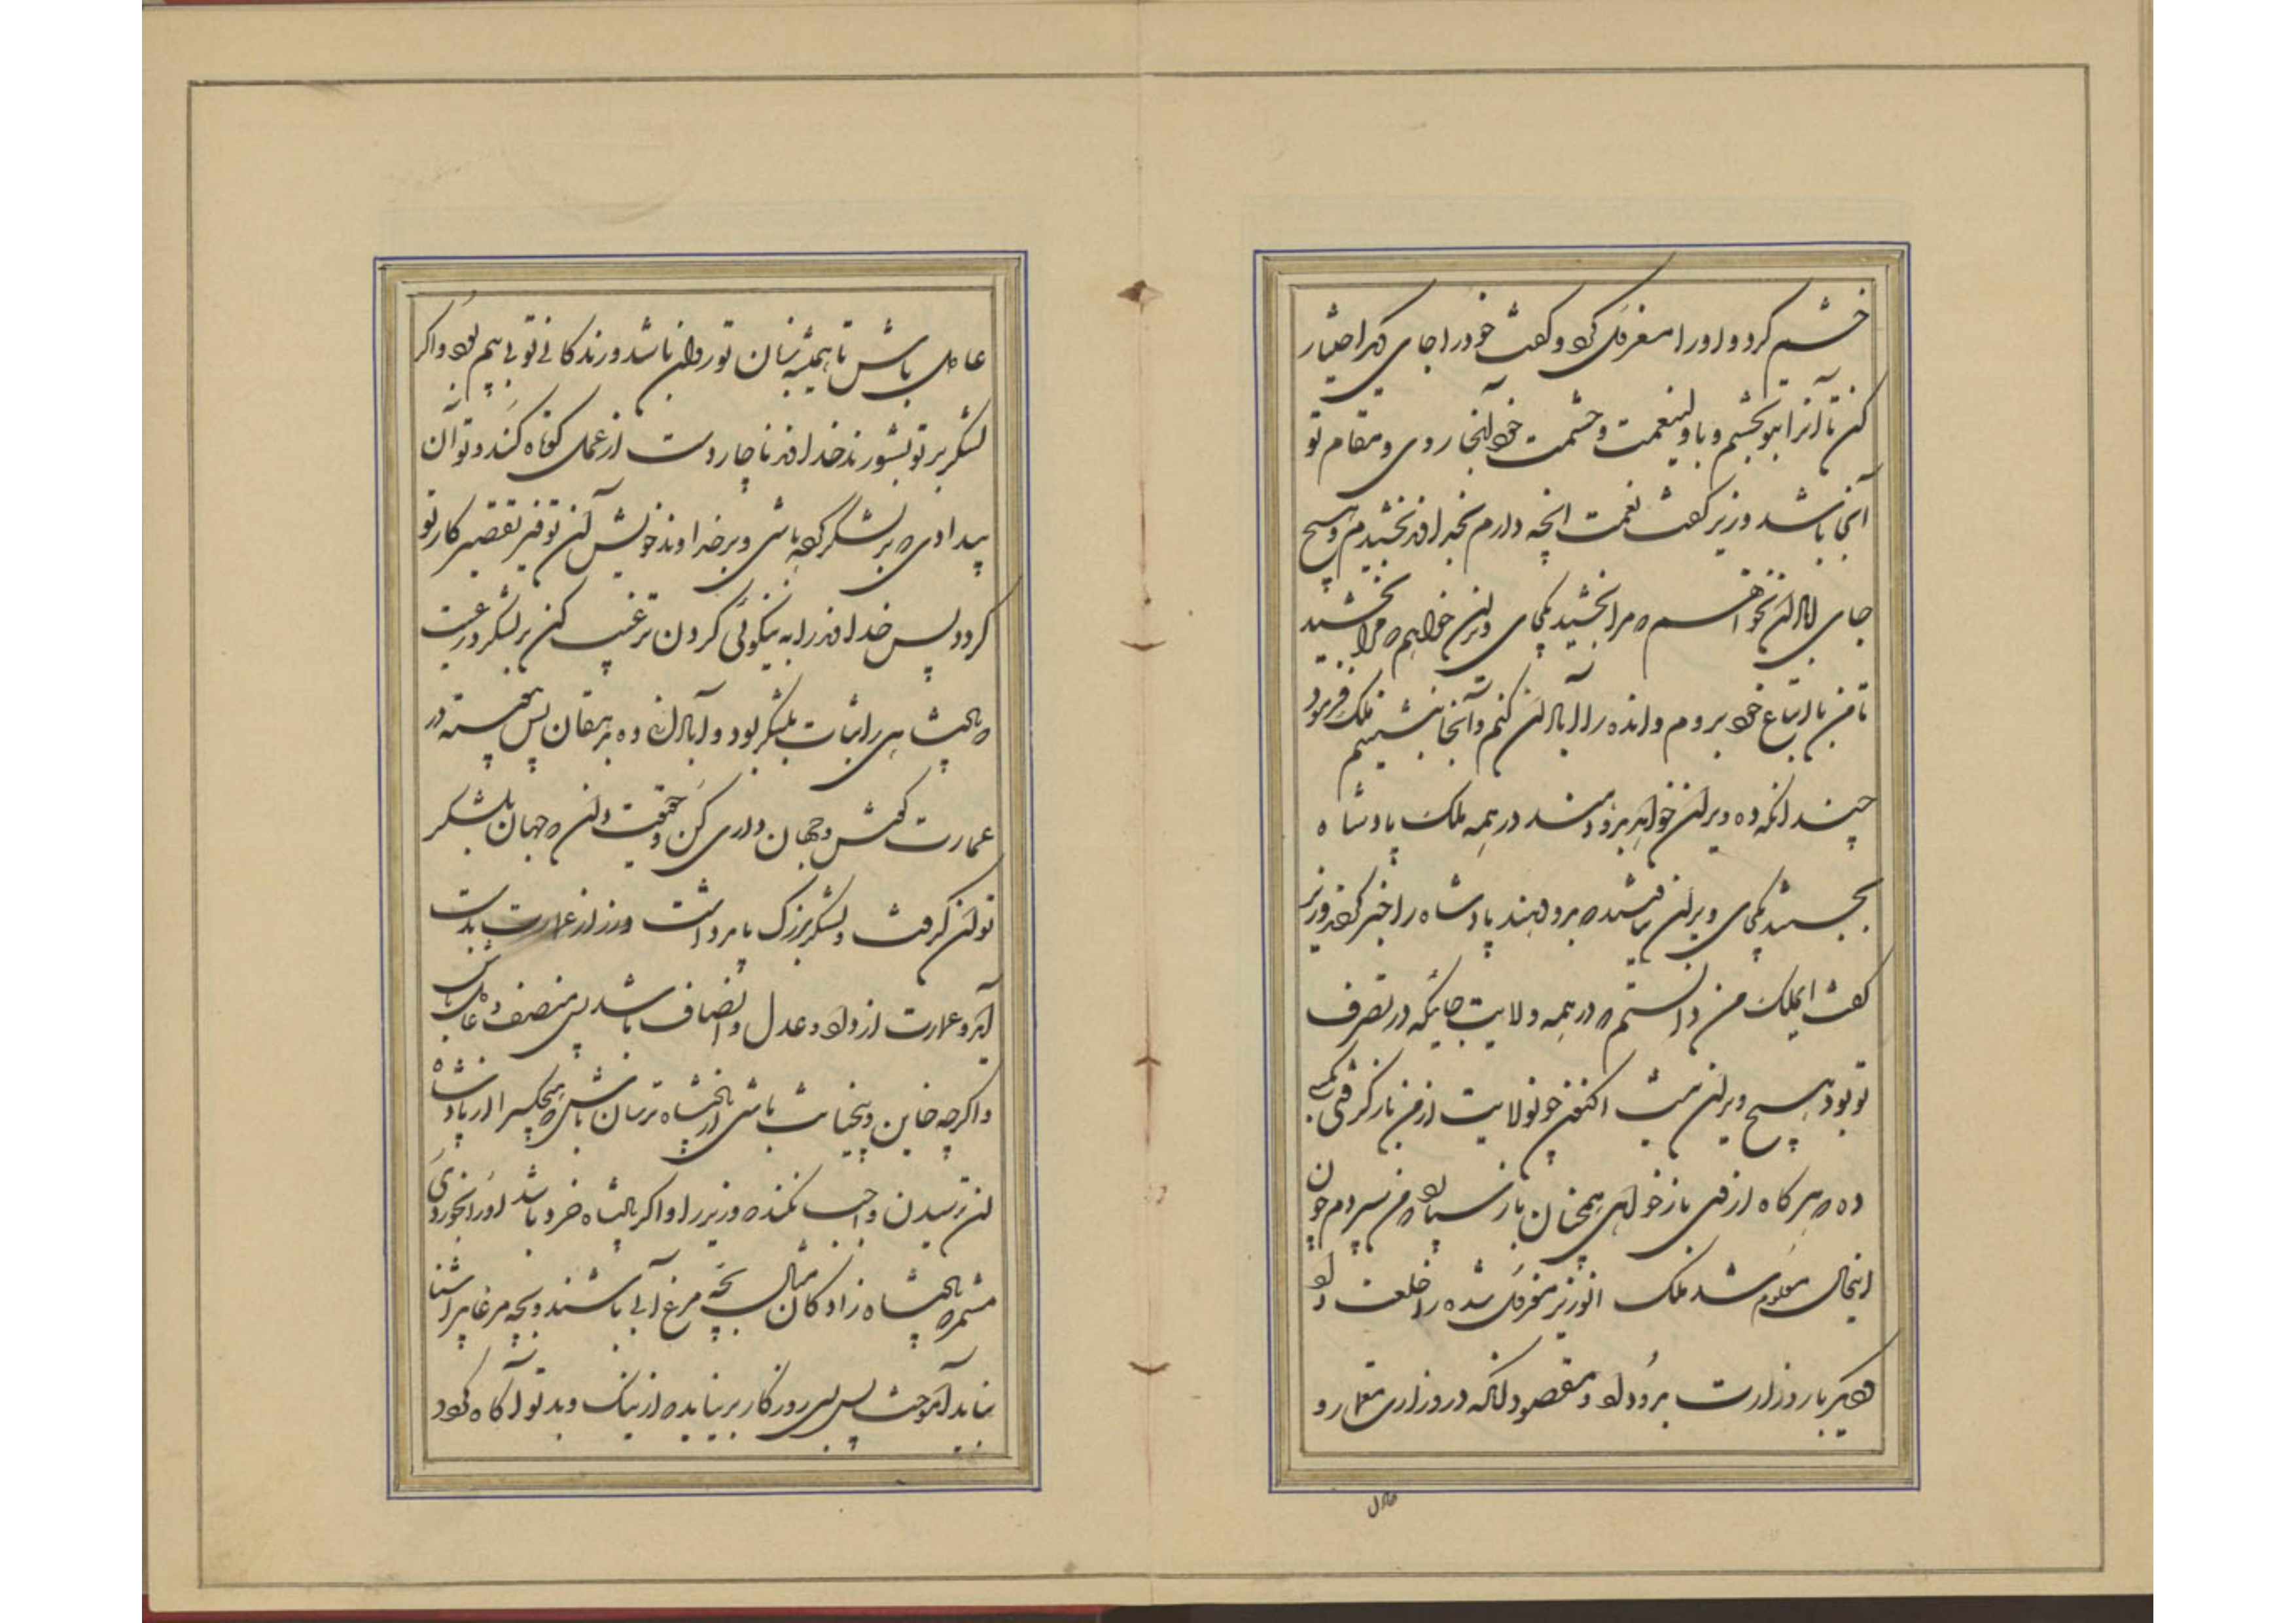 خشم کرد و او را معزول کرد و گفت خود را جای دیگر اختیار
کن تا آنرا بتو بخشم و با ولینعمت و حشمت خود آنجا روی و مقام تو
آنجا باشد وزیر گفت نعمت انچه دارم بخداوند بخشیدم و هیچ
جای آبادان نخواهم که مرا بخشید یکجای ویران خواهم که مرا بخشید
تا من با اتباع خود بروم و انده را آبادان کنم و آنجا بنشینم ملک فرمود
چندانکه ده ویران خواهد بدو دهند در همه ملک پادشاه
بجستند یکجای ویران نیافتند که بدو دهند پادشاه را خبر کردند وزیر
گفت ایملک من دانستم که در همه ولایت جائیکه در تصرف
تو بود هیچ ویران نیست اکنون چون ولایت از من باز گرفتی بکسی
ده که هر کاه از وی باز خواهی همچنان باز سپارد که من سپردم چون
اینحال معلوم شد ملک انوزیر معزول شده را خلعت داد
دیگر بار وزارت بدو داد و مقصود آنکه در وزارت معمار و
عادل باش تا همیشه زبان تو روان باشد و زندکانی تو بی بیم بود و اکر
لشکر بر تو بشورند خداوند ناچار دست از عمل کوتاه کند و تو آن
بیدادی که بر لشکر کرده باشی و بر خداوند خویش آن توفیر تقصیر کار تو
کردد پس خداوند را به نیکوئی کردن ترغیب کن بر لشکر و رعیت
که پادشاهی را ثبات بلشکر بود و آبادانی ده بدهقان پس پیوسته در
عمارت کوش و جهان داری کن و حقیقت دان که جهان بلشکر
توان گرفت و لشکر بزرک بزر توان داشت و زر از عمارت بدست
آید و عمارت از داد و عدل و انصاف باشد پس منصف و عادل باش
و اکرچه خاین و بیخیانت باشی از پادشاه ترسان باش که هیچکس را از پادشاه
آن ترسیدن واجب نکند که وزیر را و اکر پادشاه خرد باشد او را بخردی
مشمر که پادشاه زادکان مثال بچه مرغ آبی باشند و بچه مرغابی را شنا
نباید آموخت پس بسی روزکار بر نیاید که از نیک و بد تو آکاه کردد